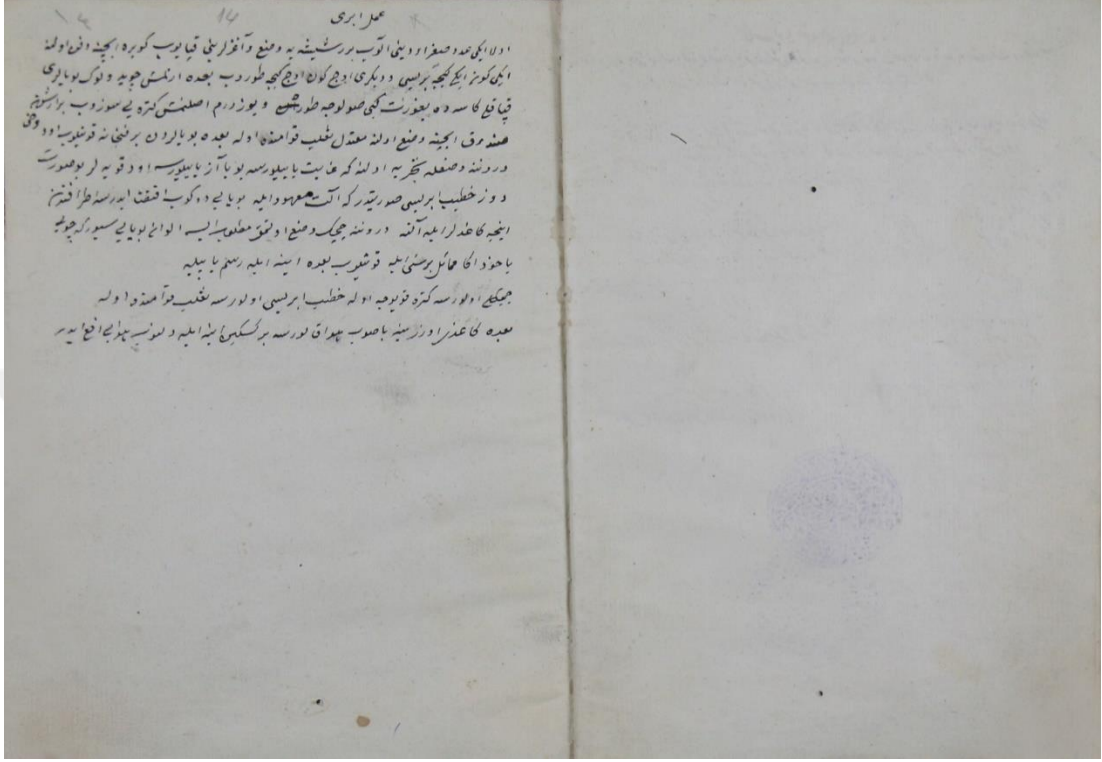 عمل ابری
اولا ایکی عدد صغر اودینی آلوب برر شیشه یه وضع و آغزلرینی قپایوب کوبره ایچنه دفن اولنه
ایکی کون ایکی کیجه بریسی و دیکری اوچ کون اوچ کیجه طوروب بعده ازلمش چوید و لوک بویالری
قپاقلی کاسه ده یوغورت کبی صولوجه و یوز درهم اصلنمش کتره یی سوزوب بر
صندوق ایچینه وضع اولنه معتدل ثعلب قوامنده اوله بعده بویالردن بر فنجانه قونیلوب اود
دروننه وضعله تجربه اولنه که غایت یاییلورسه بویا آز یاییلورسه اود قویه لر بو صورت
دوز خطیب ابریسی صورتیدر که آلت معهود ایله بویایی دوکوب اقتضا ایدرسه طرافندن
اینجه کاغدلر ایله آلنه دروننه چیچک وضع اولنمق مطلوب ایسه الوان بویایی سیورکه چوبی
یاخود اکا مماثل بر شی ایله قونیلوب بعده ایکنه ایله رسم یاپیله
چیچکلی اولورسه کتره قویوجه اوله خطیب ابریسی اولورسه ثعلب قوامنده اوله
بعده کاغدی اوزرینه باصوب هوا قالورسه بر کسکین ایکنه ایله دلنوب هوایی دفع ایدر
14